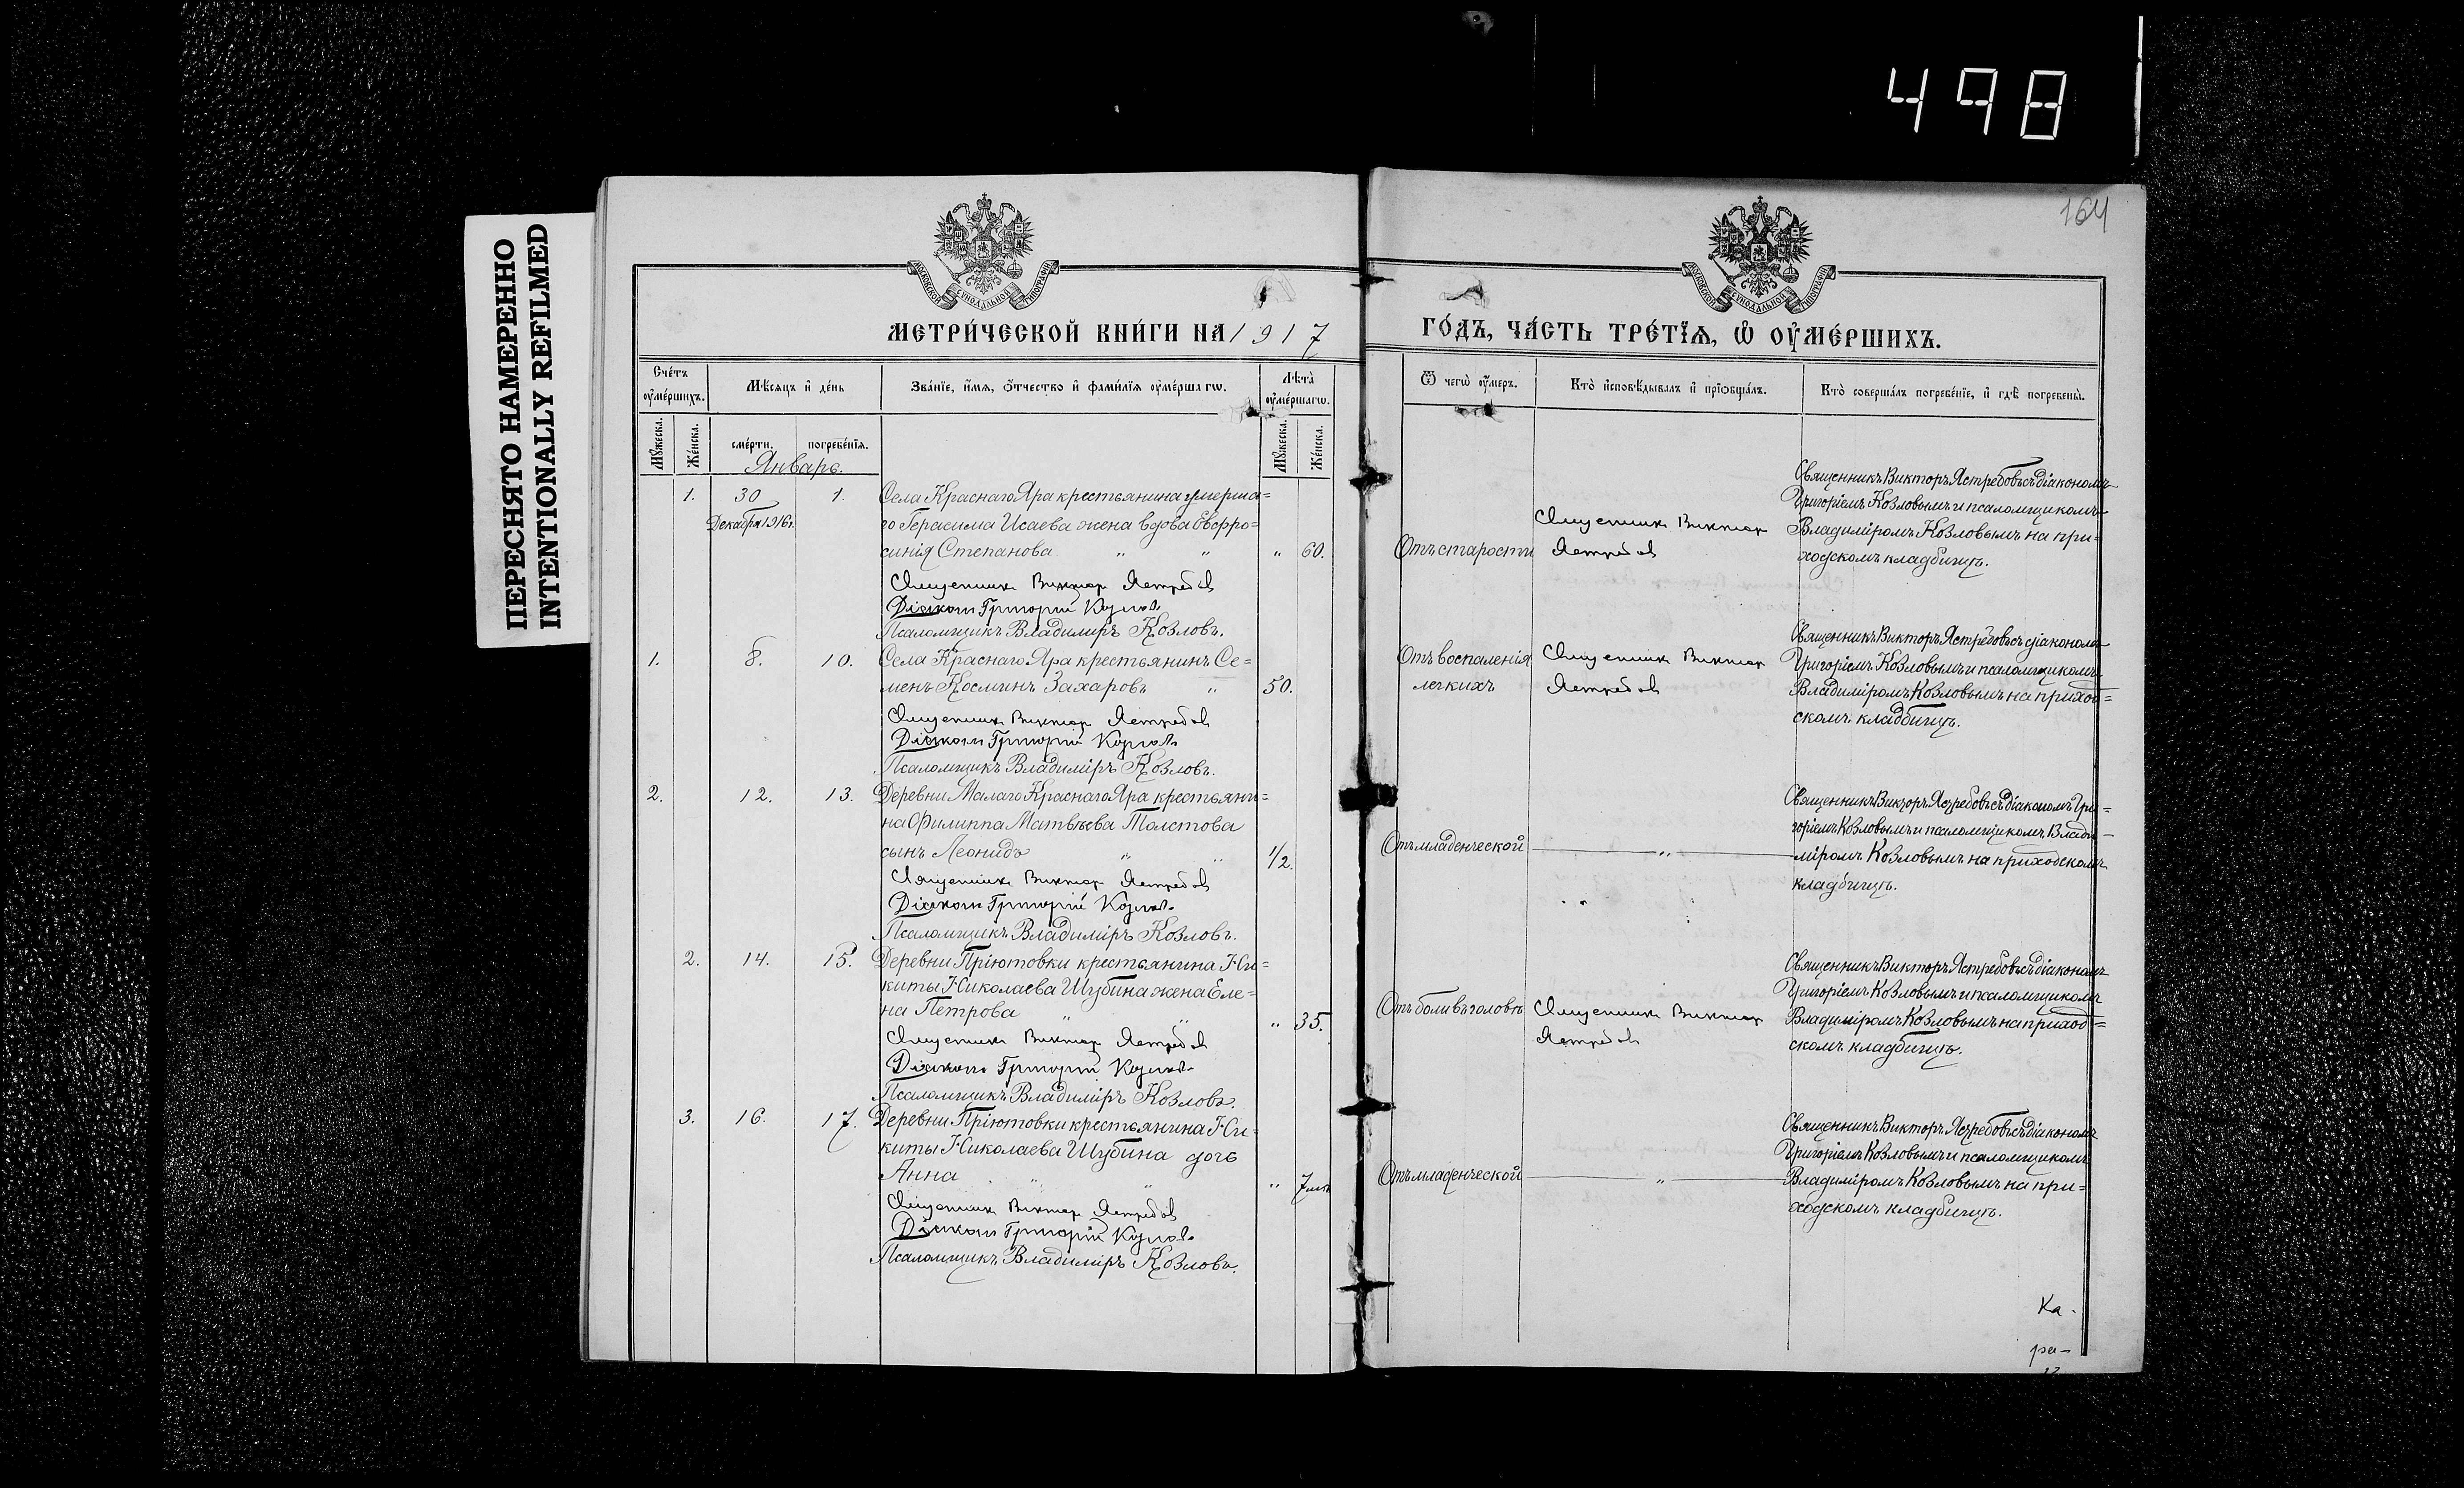 498
ПЕРЕСНЯТО НАМЕРЕННО
INTENTIONALLY REFILMED
164
МОСКОВСКОЙ СѴНОДАЛЬНОЙ ТИПОГРАФІИ
МОСКОВСКОЙ СѴНОДАЛЬНОЙ ТИПОГРАФІИ
МЕТРИ́ЧЕСКОЙ КНИ́ГИ НА 1917
ГО́ДЪ, ЧА́СТЬ ТРЕ́ТЇѦ, Ѽ ОУ҆МЕ́РШИХЪ.
Сче́тъ оу҆ме́ршихъ.
Мѣ́сяцъ и҆ де́нь
Зва́нїе, и҆́мѧ, ѻ҆́тчество и҆ фами́лїѧ оу҆ме́ршагѡ.
Лѣта̀ оу҆ме́ршагѡ.
Ѿ чегѡ̀ оу҆́меръ.
Кто̀ и҆сповѣ́дывалъ и҆ прїѡбща́лъ.
Кто̀ соверша́лъ погребе́нїе, и҆ гдѣ̀ погребены̀.
Мꙋ́жеска.
Же́нска.
сме́рти.
погребе́нїѧ.
Мꙋ́жеска.
Же́нска.
Январь.
1. 30 1. Села Краснаго Яра крестьянина умерша=
Декабря 1916 г. го Герасима Исаева жена вдова Евфро=
синія Степанова " " " 60.
Священник Виктор Ястребов
Діакон Григорій Козлов
Псаломщикъ Владиміръ Козловъ.
Отъ старости
Священник Виктор
Ястребов
Священникъ Викторъ Ястребовъ съ діакономъ
Григоріемъ Козловымъ и псаломщикомъ
Владиміромъ Козловымъ на при=
ходскомъ кладбищѣ.
1. 8. 10. Села Краснаго Яра крестьянинъ Се=
менъ Косминъ Захаровъ " 50.
Священник Виктор Ястребов
Діакон Григорій Козлов
Псаломщикъ Владиміръ Козловъ.
Отъ воспаленія
легкихъ
Священник Виктор
Ястребов
Священникъ Викторъ Ястребовъ съ діакономъ
Григоріемъ Козловымъ и псаломщикомъ
Владиміромъ Козловымъ на приход=
скомъ кладбищѣ.
2. 12. 13. Деревни Малаго Краснаго Яра крестьяни=
на Филиппа Матвѣева Толстова
сынъ Леонидъ " " 1/2.
Священник Виктор Ястребов
Діакон Григорій Козлов
Псаломщикъ Владиміръ Козловъ.
Отъ младенческой
"
Священникъ Викторъ Ястребовъ съ діакономъ Гри=
горіемъ Козловымъ и псаломщикомъ Влади-
міромъ Козловымъ на приходскомъ
кладбищѣ.
2. 14. 15. Деревни Пріютовки крестьянина Ни=
киты Николаева Шубина жена Еле=
на Петрова " " " 35.
Священник Виктор Ястребов
Діакон Григорій Козлов
Псаломщикъ Владиміръ Козловъ.
Отъ боли въ головѣ
Священник Виктор
Ястребов
Священникъ Викторъ Ястребовъ съ діакономъ
Григоріемъ Козловымъ и псаломщикомъ
Владиміромъ Козловымъ на приход=
скомъ кладбищѣ.
3. 16. 17. Деревни Пріютовки крестьянина Ни=
киты Николаева Шубина дочь
Анна " " " 7
Священник Виктор Ястребов
Діакон Григорій Козлов
Псаломщикъ Владиміръ Козловъ.
Отъ младенческой
"
Священникъ Викторъ Ястребовъ съ діакономъ
Григоріемъ Козловымъ и псаломщикомъ
Владиміромъ Козловымъ на при=
ходскомъ кладбищѣ.
Ка-
ра-